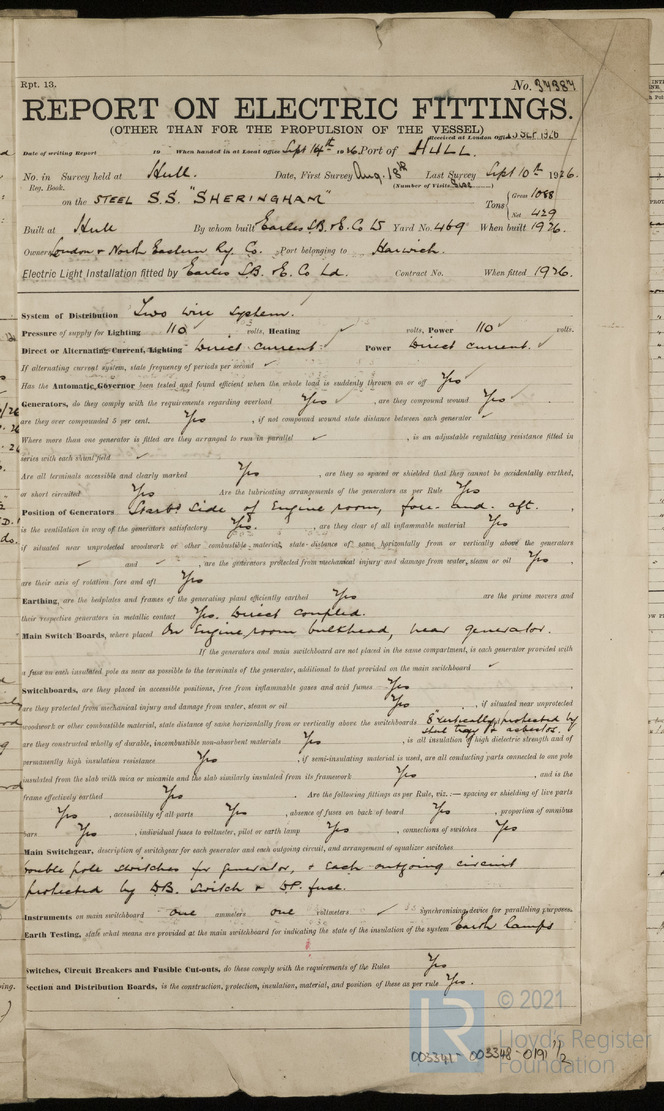 Rpt. 13.
No. 37387
REPORT ON ELECTRIC FITTINGS.
(OTHER THAN FOR THE PROPULSION OF THE VESSEL)
Received at London Office 15 SEP 1926
Date of writing Report 19 When handed in at Local Office Sept 14th 1926 Port of HULL.
No. in Survey held at Hull. Date, First Survey Aug. 18th Last Survey Sept 10th 1926.
Reg. Book. (Number of Visits )
on the STEEL S.S. "SHERINGHAM" Tons { Gross 1088 Net 429
Built at Hull By whom built Earles S.B. & E. Co Ld Yard No. 469 When built 1926.
Owners London & North Eastern Ry. Co. Port belonging to Harwich.
Electric Light Installation fitted by Earles S.B. & E. Co Ld. Contract No. When fitted 1926.
System of Distribution Two wire system.
Pressure of supply for Lighting 110 volts, Heating ✓ volts, Power 110 ✓ volts.
Direct or Alternating Current, Lighting Direct current ✓ Power Direct current. ✓
If alternating current system, state frequency of periods per second ✓
Has the Automatic Governor been tested and found efficient when the whole load is suddenly thrown on or off Yes ✓
Generators, do they comply with the requirements regarding overload Yes ✓ , are they compound wound Yes ✓
are they over compounded 5 per cent. Yes ✓ , if not compound wound state distance between each generator ✓
Where more than one generator is fitted are they arranged to run in parallel ✓ , is an adjustable regulating resistance fitted in
series with each shunt field ✓
Are all terminals accessible and clearly marked Yes , are they so spaced or shielded that they cannot be accidentally earthed,
or short circuited Yes Are the lubricating arrangements of the generators as per Rule Yes
Position of Generators Starbd side of Engine room, fore and aft.
is the ventilation in way of the generators satisfactory Yes. , are they clear of all inflammable material Yes
if situated near unprotected woodwork or other combustible material, state distance of same horizontally from or vertically above the generators
✓ and ✓ , are the generators protected from mechanical injury and damage from water, steam or oil Yes .
are their axis of rotation fore and aft Yes
Earthing, are the bedplates and frames of the generating plant efficiently earthed Yes are the prime movers and
their respective generators in metallic contact Yes. Direct Coupled.
Main Switch Boards, where placed On Engine room bulkhead, near generator.
If the generators and main switchboard are not placed in the same compartment, is each generator provided with
a fuse on each insulated pole as near as possible to the terminals of the generator, additional to that provided on the main switchboard ✓
Switchboards, are they placed in accessible positions, free from inflammable gases and acid fumes Yes
are they protected from mechanical injury and damage from water, steam or oil Yes , if situated near unprotected
woodwork or other combustible material, state distance of same horizontally from or vertically above the switchboards 8" vertically, protected by
steel tray & asbestos.
are they constructed wholly of durable, incombustible non-absorbent materials Yes , is all insulation of high dielectric strength and of
permanently high insulation resistance Yes , if semi-insulating material is used, are all conducting parts connected to one pole
insulated from the slab with mica or micanite and the slab similarly insulated from its framework Yes , and is the
frame effectively earthed Yes . Are the following fittings as per Rule, viz.:— spacing or shielding of live parts
Yes , accessibility of all parts Yes , absence of fuses on back of board Yes , proportion of omnibus
bars Yes , individual fuses to voltmeter, pilot or earth lamp Yes , connections of switches Yes
Main Switchgear, description of switchgear for each generator and each outgoing circuit, and arrangement of equalizer switches
Double pole switches for generator, & Each outgoing circuit
protected by D.P. switch & D.P. fuse.
Instruments on main switchboard one ammeters one voltmeters ✓ synchronising device for paralleling purposes.
Earth Testing, state what means are provided at the main switchboard for indicating the state of the insulation of the system Earth lamps
Switches, Circuit Breakers and Fusible Cut-outs, do these comply with the requirements of the Rules Yes
Section and Distribution Boards, is the construction, protection, insulation, material, and position of these as per rule Yes.
LR © 2021
Lloyd's Register
Foundation
003341-003348-0191 1/2